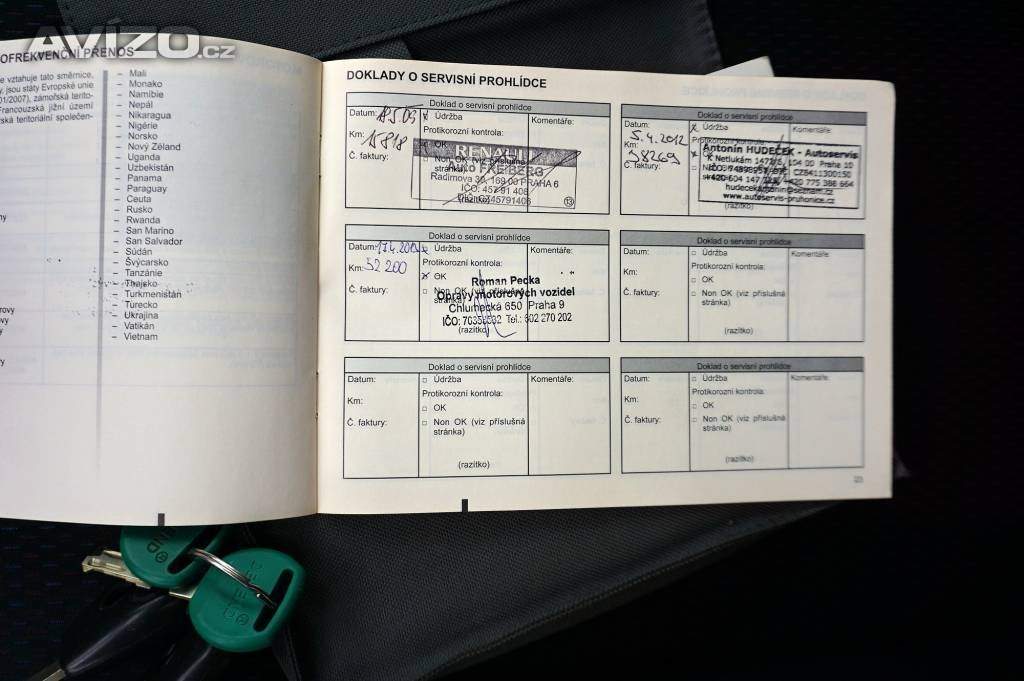 AVÍZO.cz
OFREKVENČNÍ PŘENOS
e vztahuje tato směrnice,
y, jsou státy Evropské unie
01/2007), zámořská terito-
Francouzská jižní území
rská teritoriální společen-
– Mali
– Monako
– Namibie
– Nepál
– Nikaragua
– Nigérie
– Norsko
– Nový Zéland
– Uganda
– Uzbekistán
– Panama
– Paraguay
– Ceuta
– Rusko
– Rwanda
– San Marino
– San Salvador
– Súdán
– Švýcarsko
– Tanzánie
– Thajsko
– Turkmenistán
– Turecko
– Ukrajina
– Vatikán
– Vietnam
DOKLADY O SERVISNÍ PROHLÍDCE
Doklad o servisní prohlídce
Datum:
Km: 15818
Č. faktury:
Údržba
Protikorozní kontrola:
OK
Non OK (viz příslušná
stránka)
(razítko)
Komentáře:
RENAULT
AUTO FREIBERG
Radimova 30, 169 00 PRAHA 6
IČO: 457 91 406
DIČ: CZ45791406
13
Doklad o servisní prohlídce
Datum: 5.4.2012
Km: 38269
Č. faktury:
Údržba
Protikorozní kontrola:
Komentáře:
Antonín HUDEČEK - Autoservis
K Netlukám 1472/6, 104 00 Praha 10
CZ8411300150
+420 604 147 +420 775 386 664
hudecekantonin@seznam.cz
www.autoservis-pruhonice.cz
(razítko)
Doklad o servisní prohlídce
Datum: 17.4.2014
Km: 52 200
Č. faktury:
Údržba
Protikorozní kontrola:
OK
Non OK (viz příslušná
stránka)
(razítko)
Komentáře:
Roman Pecka
Opravy motorových vozidel
Chlumecká 650 Praha 9
Tel.: 602 270 202
Doklad o servisní prohlídce
Datum:
Km:
Č. faktury:
Údržba
Protikorozní kontrola:
OK
Non OK (viz příslušná
stránka)
(razítko)
Komentáře:
Doklad o servisní prohlídce
Datum:
Km:
Č. faktury:
Údržba
Protikorozní kontrola:
OK
Non OK (viz příslušná
stránka)
(razítko)
Komentáře:
Doklad o servisní prohlídce
Datum:
Km:
Č. faktury:
Údržba
Protikorozní kontrola:
OK
Non OK (viz příslušná
stránka)
(razítko)
Komentáře: